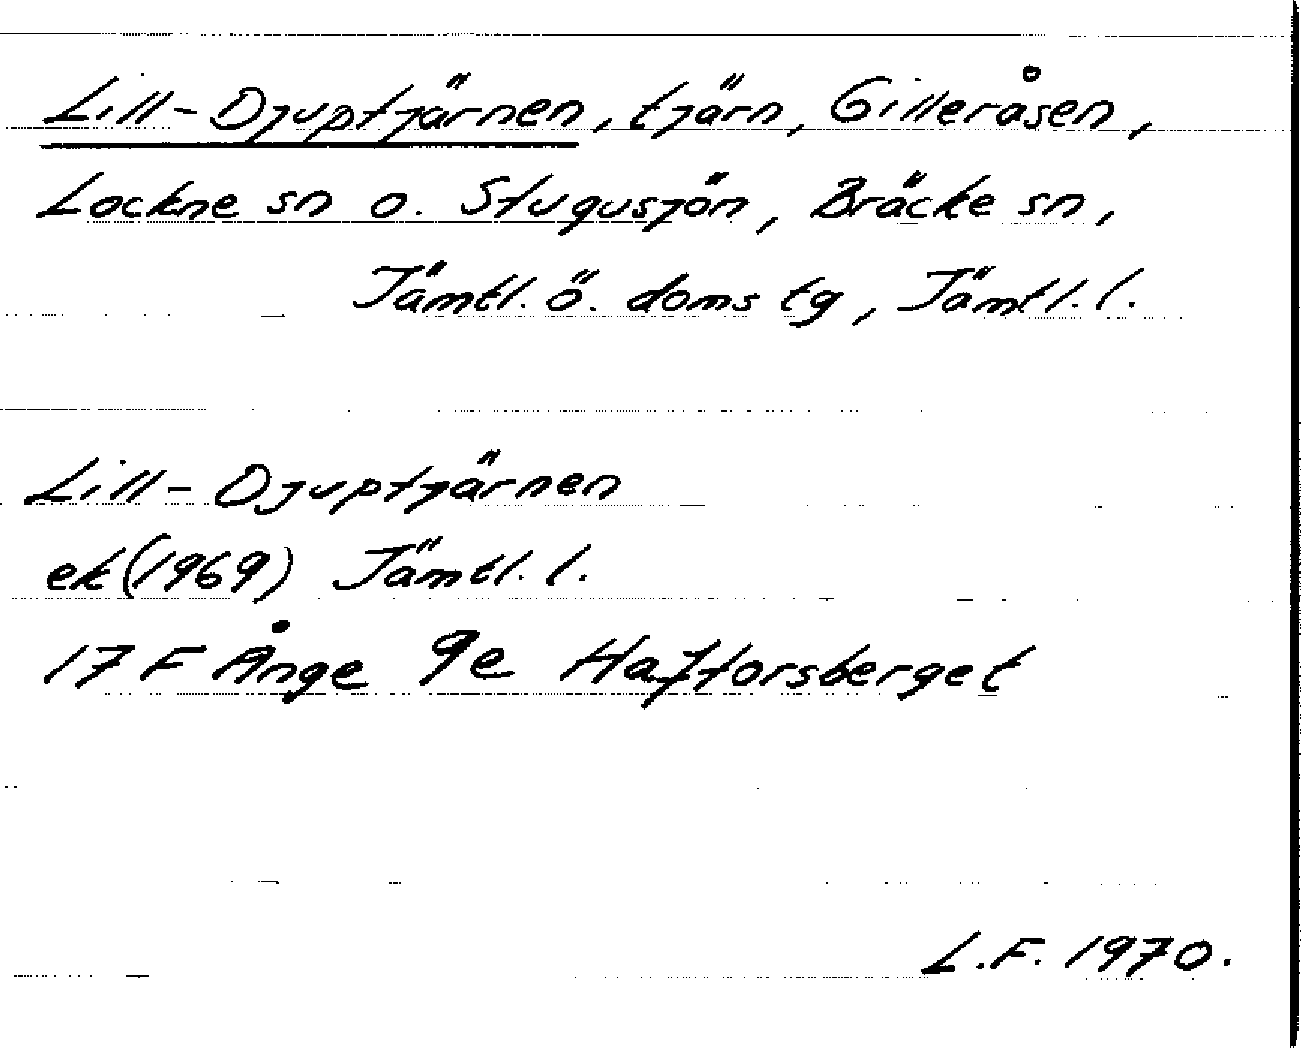 Lill-Djuptjärnen, tjärn, Gilleråsen,
Lockne sn o. Stugusjön, Bräcke sn,
Jämtl. ö. doms tg, Jämtl. l.
Lill-Djuptjärnen
ek (1969) Jämtl. l.
17 F Ånge 9e Hajtorsberget
L.F. 1970.